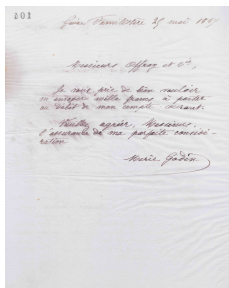 201
Guise Familistère 25 mai 18
Messieurs Offroy et Cie,
Je vous prie de bien vouloir
mille francs à porter
au débit de mon compte courant.
Veuillez agréer, Messieurs,
l'assurance de ma parfaite considé-
ration
Marie Godin